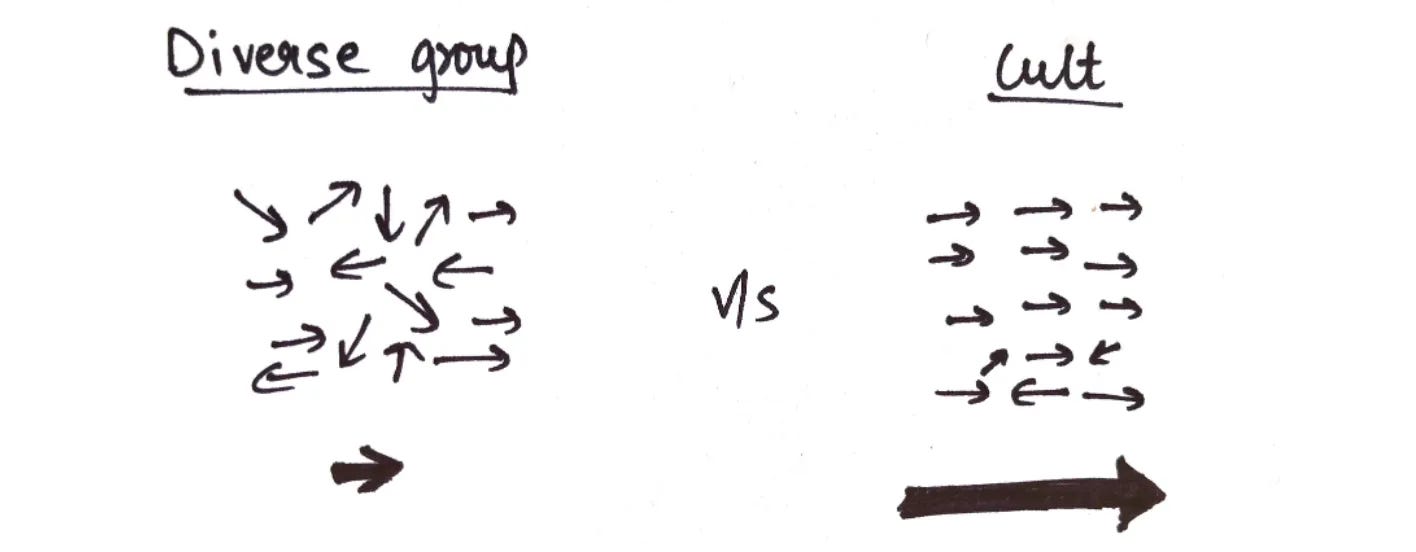 Diverse group
Cult
V/s